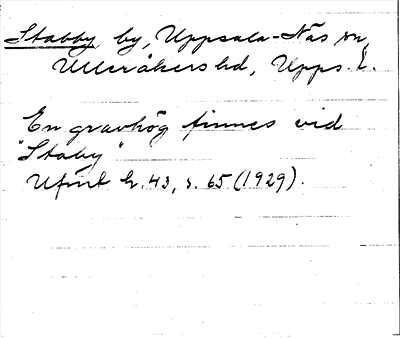 Stabby by, Uppsala-Näs sn,
Ulleråkers hd, Upps. L.
En gravhög finnes vid
"Staby"
Ufmt h. 43, s. 65 (1929).